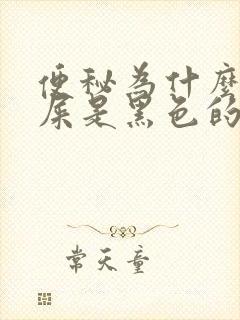 便秘為什麼
屎是黑色的
常天童